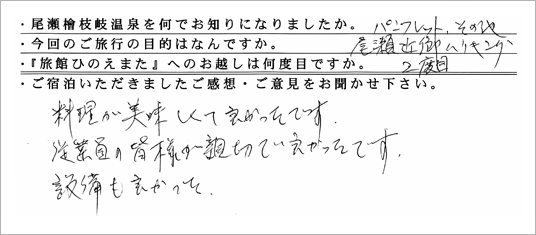 ・尾瀬檜枝岐温泉を何でお知りになりましたか。 パンフレット、その他
・今回のご旅行の目的はなんですか。 尾瀬近郷ハイキング
・『旅館ひのえまた』へのお越しは何度目ですか。 2度目
・ご宿泊いただきましたご感想・ご意見をお聞かせ下さい。
料理が美味しくて良かったです。
従業員の皆様が親切で良かったです。
設備も良かった。